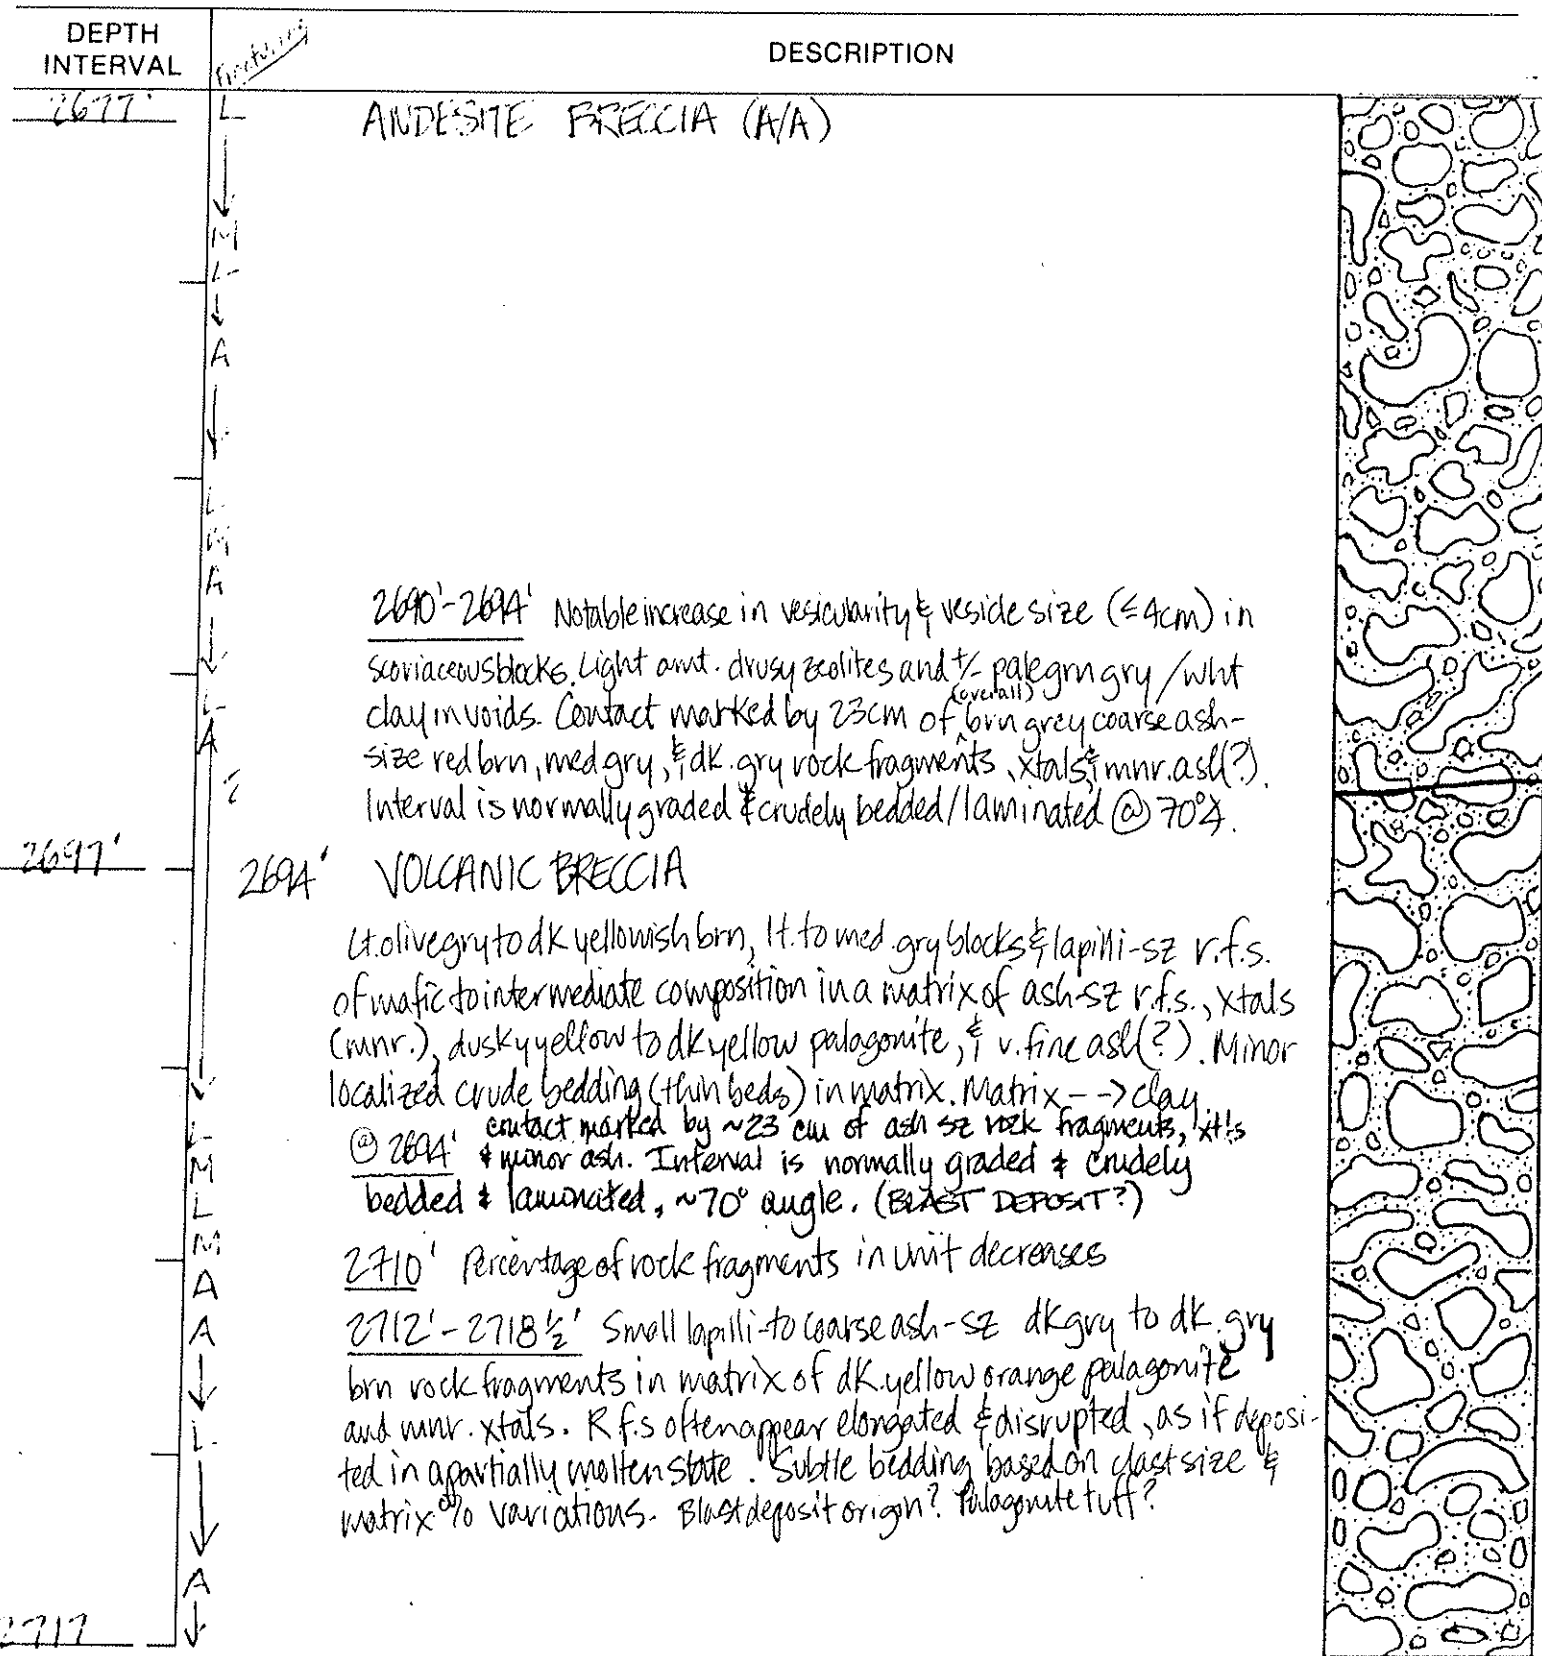 DEPTH INTERVAL
Fracturing
DESCRIPTION
2677'
L
M
L
A
L
M
A
L
A
2697'
L
M
L
M
A
A
L
A
2717
ANDESITE BRECCIA (A/A)
2690'-2694' Notable increase in vesicularity & vesicle size (≤4cm) in
scoriaceous blocks. Light amt. drusy zeolites and +/- pale grn gry /wht
clay in voids. Contact marked by 23cm of (overall) brn grey coarse ash-
size red brn, med gry, & dk. gry rock fragments, xtals, & mnr. ash(?).
Interval is normally graded & crudely bedded/laminated @ 70°∡.
2694' VOLCANIC BRECCIA
Lt. olive gry to dk yellowish brn, lt. to med. gry blocks & lapilli-sz r.f.s.
of mafic to intermediate composition in a matrix of ash-sz r.f.s., xtals
(mnr.), dusky yellow to dk yellow palagonite, & v. fine ash(?). Minor
localized crude bedding (thin beds) in matrix. Matrix --> clay.
@ 2694' contact marked by ~23 cm of ash sz rock fragments, xtls
& minor ash. Interval is normally graded & crudely
bedded & laminated, ~70° angle. (BLAST DEPOSIT?)
2710' Percentage of rock fragments in unit decreases
2712'-2718½' Small lapilli-to coarse ash-sz dk gry to dk. gry
brn rock fragments in matrix of dk. yellow orange palagonite
and mnr. xtals. R.f.s often appear elongated & disrupted, as if deposi-
ted in a partially molten state. Subtle bedding based on clast size &
matrix % variations. Blast deposit origin? Palagonite tuff?